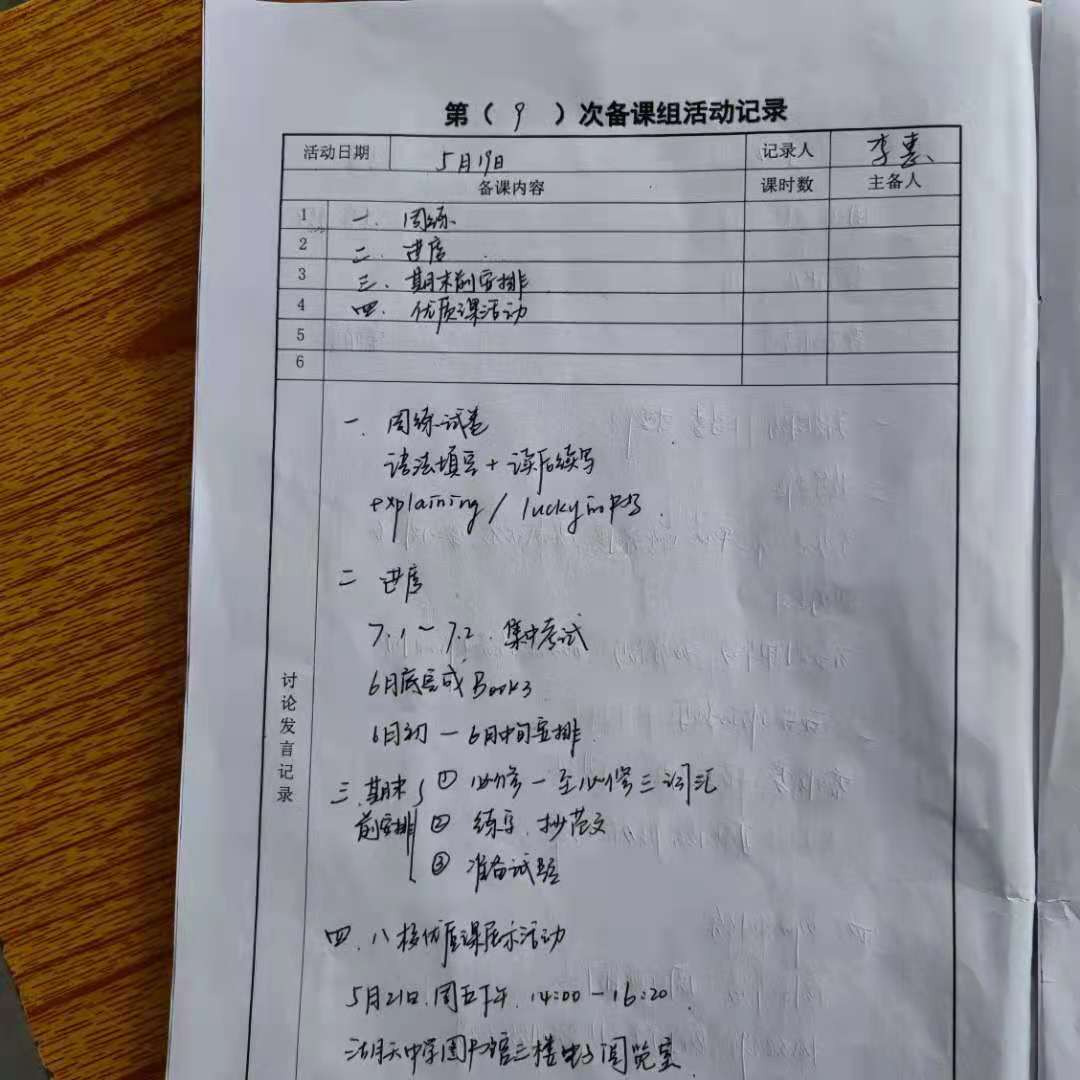 第（ 9 ）次备课组活动记录
活动日期 5月19日 记录人 李惠
备课内容 课时数 主备人
1 一. 周练
2 二. 进度
3 三. 期末前安排
4 四. 优质课活动
5
6
讨论发言记录
一. 周练试卷
语法填空 + 读后续写
explaining / lucky
二 进度
7.1 ~ 7.2. 集中考试
6月底完成 Book3
6月初 — 6月中旬安排
三.期末前安排 ① 必修一至必修三词汇
② 练字. 抄范文
③ 准备试题
四. 八校优质课展示活动
5月21日.周五下午. 14:00 - 16:20
中学图书馆三楼电子阅览室